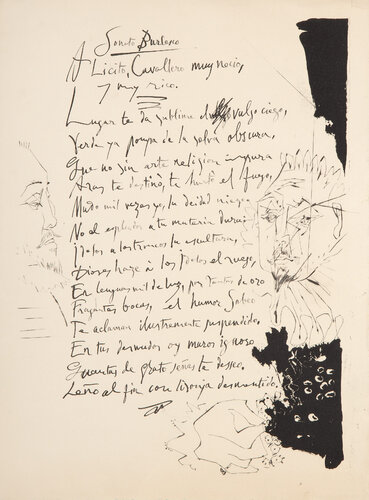 Soneto Burlesco
A Licito, Cavallero muy necio,
y muy rico.
Lugar te da sublime el vulgo ciego,
Verde ya pompa de la selva obscura,
Que no sin arte religion impura
Aras te destinò, te hurtò el fuego,
Mudo mil vezes yo, la deidad niego
No el esplendor a tu materia dura:
Idolos a los troncos la escultura,
Dioses haze à los Idolos el ruego,
En lenguas mil de luz, por tantas de oro
Fragantes bocas, el humor Sabeo
Te aclaman ilustremente suspendido,
En tus desnudos oy muros ignoro
Quantas de grato señas te desseo,
Leño al fin con lisonja desmentido.